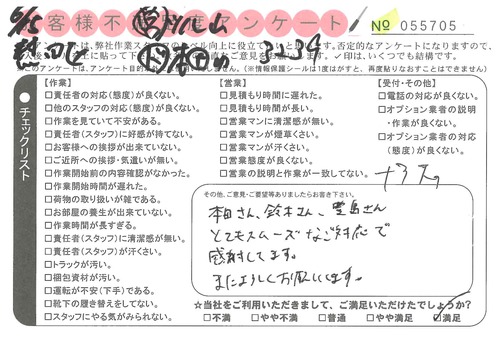 お客様不満足度アンケート
No 055705
6/15
アンケートは、弊社作業スタッフのレベル向上に役立て
否定的なアンケートになりますので、
直接ご意見をお願いします。✓印は、いくつでも結構です。
(※情報保護シールは1度はがすと、再度貼りなおすことはできません)
チェックリスト
【作業】
□責任者の対応(態度)が良くない。
□他のスタッフの対応(態度)が良くない。
□作業を見ていて不安がある。
□責任者(スタッフ)に好感が持てない。
□お客様への挨拶が出来ていない。
□ご近所への挨拶・気遣いが無い。
□作業開始前の内容確認がなかった。
□作業開始時間が遅れた。
□荷物の取り扱いが雑である。
□お部屋の養生が出来ていない。
□作業時間が長すぎる。
□責任者(スタッフ)に清潔感が無い。
□責任者(スタッフ)が汗くさい。
□トラックが汚い。
□梱包資材が汚い。
□運転が不安(下手)である。
□靴下の履き替えをしてない。
□スタッフにやる気がみられない。
【営業】
□見積もり時間に遅れた。
□見積もり時間が長い。
□営業マンに清潔感が無い。
□営業マンが煙草くさい。
□営業マンが汗くさい。
□営業態度が良くない。
□営業の説明と作業が一致してない。
【受付・その他】
□電話の対応が良くない。
□オプション業者の説明・作業が良くない。
□オプション業者の対応(態度)が良くない。
ナシ
その他、ご意見・ご要望等ありましたらお書き下さい。
本田さん、鈴木さん、豊島さん
とてもスムーズなご対応で
感謝してます。
またよろしくお願いします。
☆当社をご利用いただきまして、ご満足いただけたでしょうか?
□不満 □やや不満 □普通 □やや満足 □満足